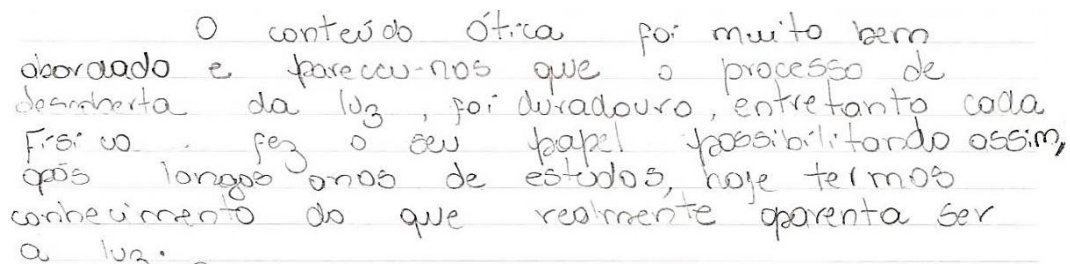 O conteúdo ótica foi muito bem
abordado e pareceu-nos que o processo de
descoberta da luz, foi duradouro, entretanto cada
Físico fez o seu papel possibilitando assim,
após longos anos de estudos, hoje termos
conhecimento do que realmente aparenta ser
a luz.